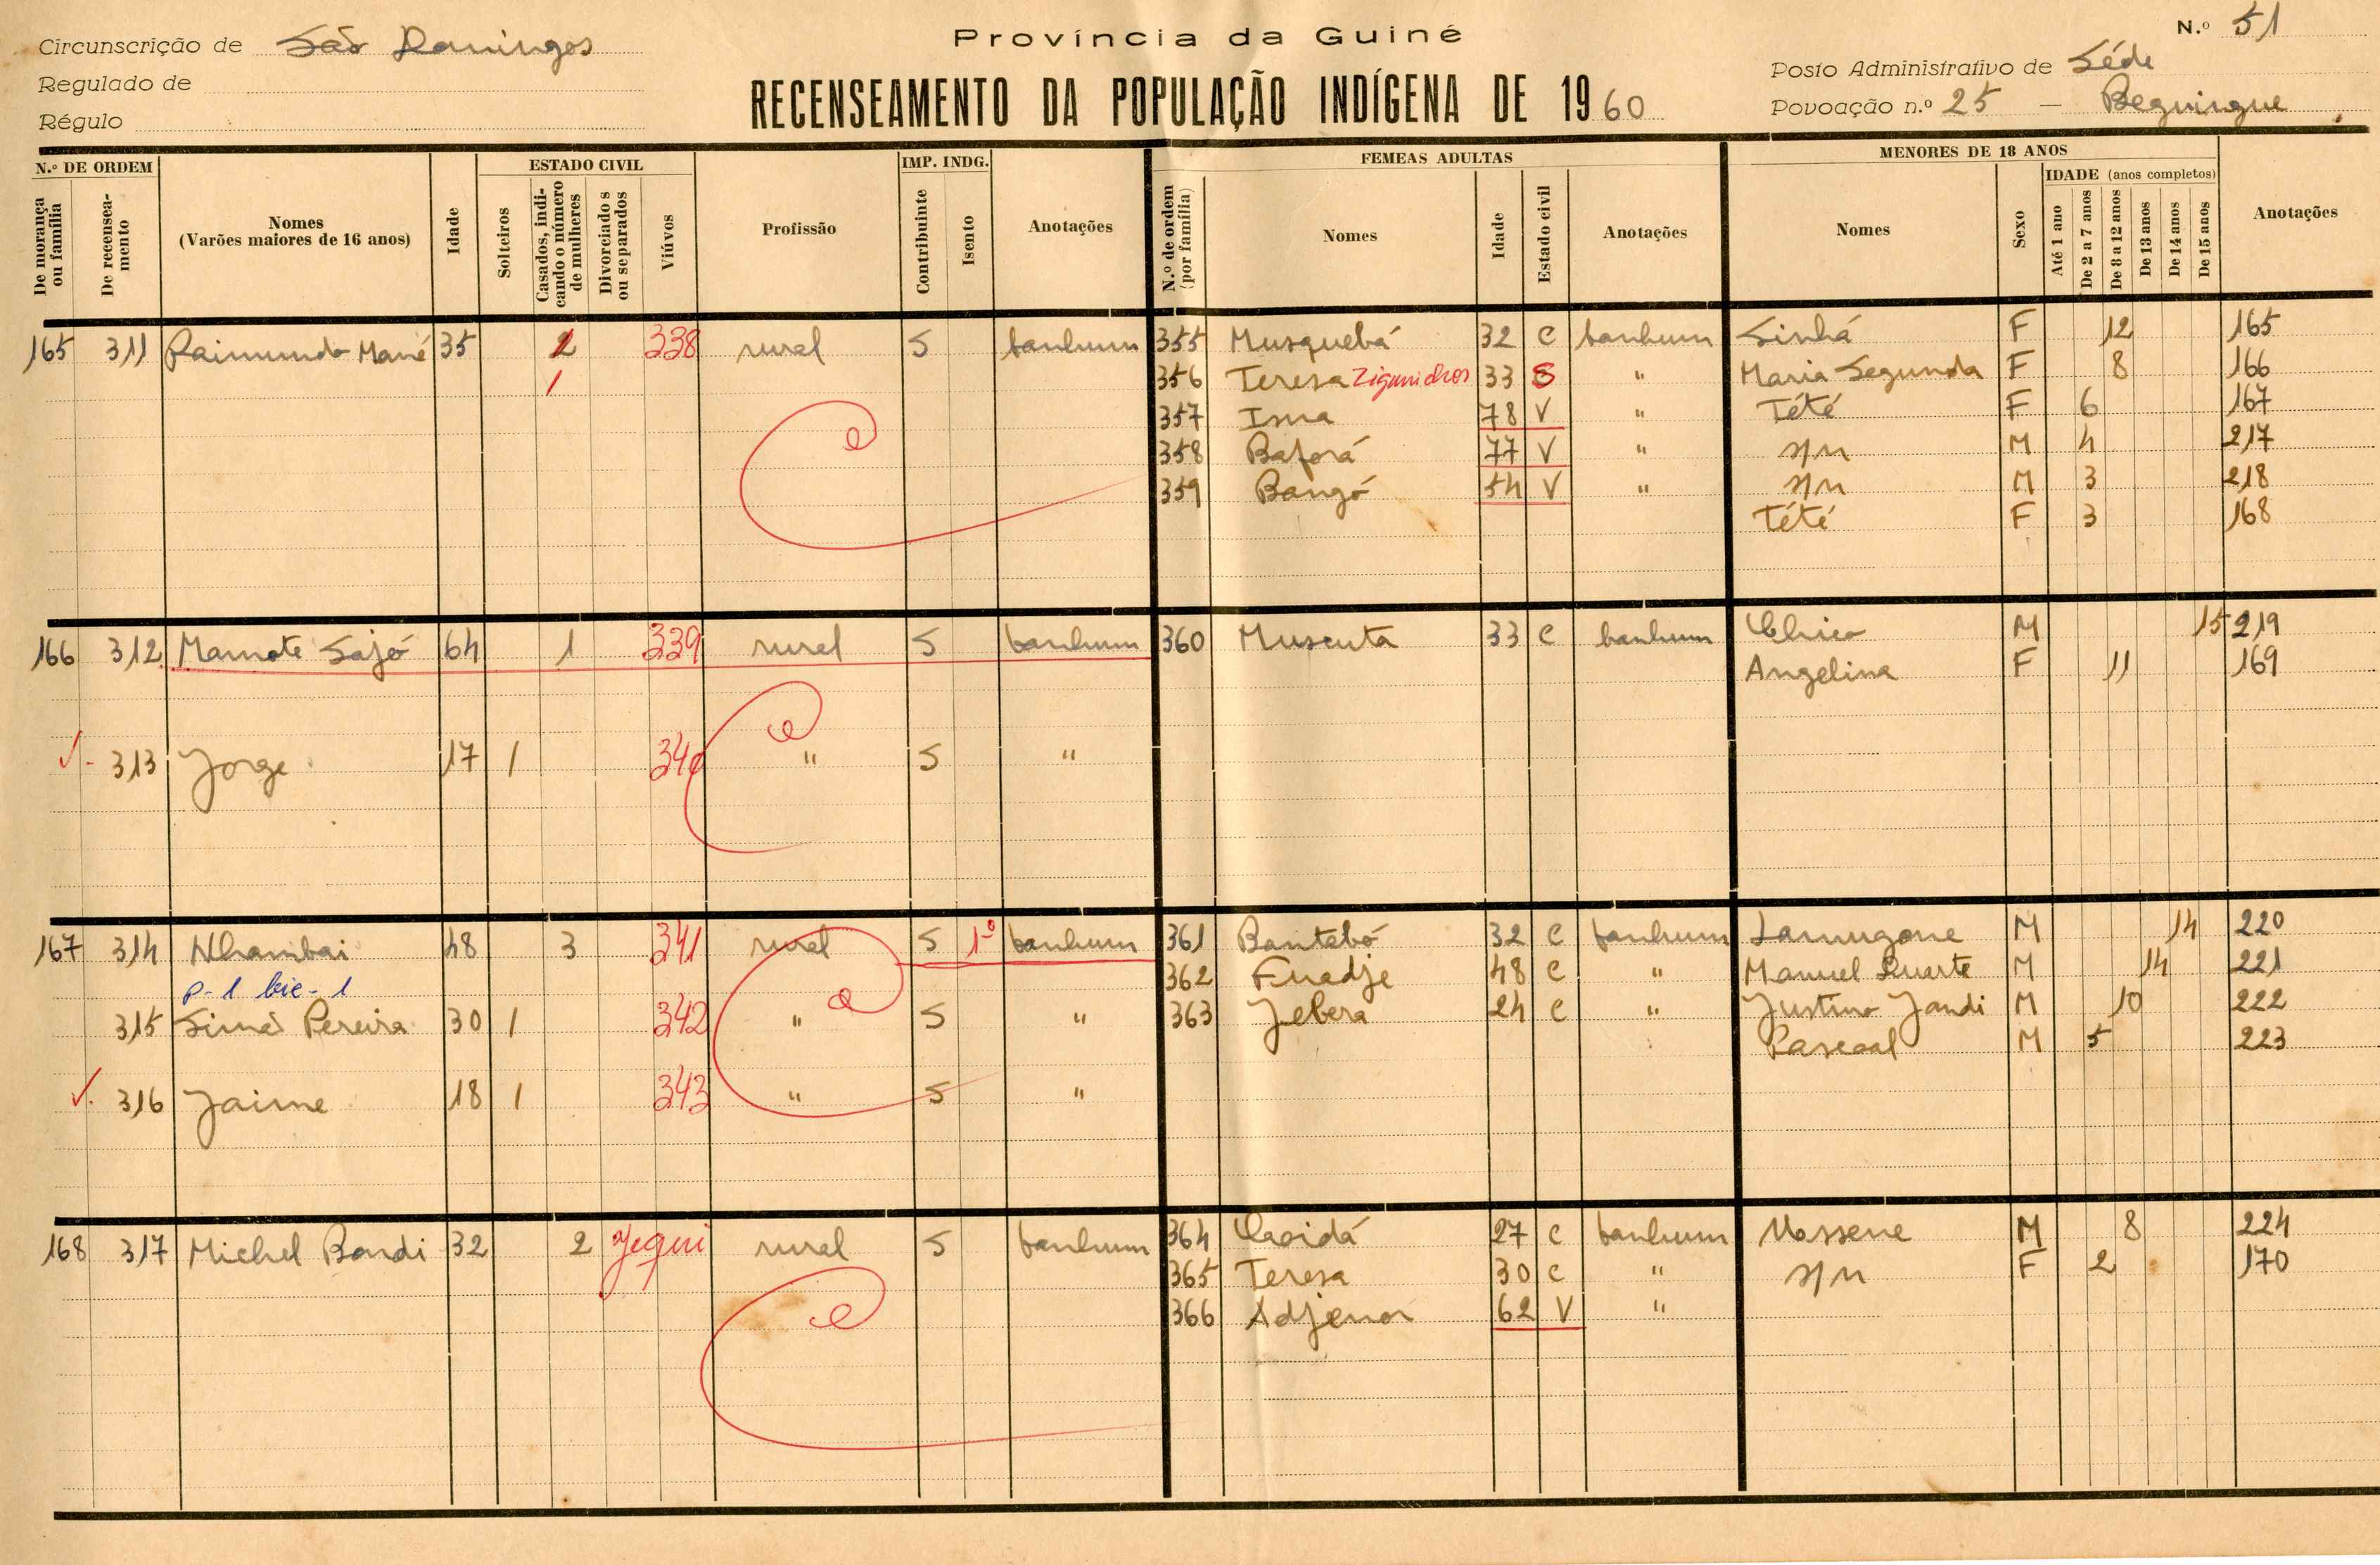 Província da Guiné
N.º 51
Circunscrição de São Domingos
Regulado de
Régulo
RECENSEAMENTO DA POPULAÇÃO INDÍGENA DE 1960
Posto Administrativo de Séde
Povoação n.º 25 — Beguingue
N.º DE ORDEM
De morança ou família
De recenseamento
Nomes
(Varões maiores de 16 anos)
Idade
ESTADO CIVIL
Solteiros
Casados, indicando o número de mulheres
Divorciados ou separados
Viúvos
Profissão
IMP. INDG.
Contribuinte
Isento
Anotações
FEMEAS ADULTAS
N.º de ordem (por família)
Nomes
Idade
Estado civil
Anotações
MENORES DE 18 ANOS
Nomes
Sexo
IDADE (anos completos)
Até 1 ano
De 2 a 7 anos
De 8 a 12 anos
De 13 anos
De 14 anos
De 15 anos
Anotações
165 311 Raimundo Mané 35 2 338 rural S banhum 355 Musquebá 32 C banhum Sinhá F 12 165
1 356 Teresa 33 S " Maria Segunda F 8 166
357 Isna 78 V " Tété F 6 167
358 Baforá 77 V " s/n M 4 217
359 Bangó 54 V " s/n M 3 218
Tété F 3 168
166 312 Mamote Sajó 64 1 339 rural S banhum 360 Muscuta 33 C banhum Chico M 15 219
Angelina F 11 169
313 Jorge 17 1 340 " S "
167 314 Nhambai 48 3 341 rural S 1º banhum 361 Bantabó 32 C banhum Lamugone M 14 220
p-1 bic-1 362 Fuadje 48 C " Manuel Duarte M 14 221
315 Simão Pereira 30 1 342 " S " 363 Jebera 24 C " Justino Jandi M 10 222
Pascoal M 5 223
316 Jaime 18 1 343 " S "
168 317 Michel Bandi 32 2 Jequi rural S banhum 364 27 C banhum Mossene M 8 224
365 Teresa 30 C " s/n F 2 170
366 Adjenor 62 V "